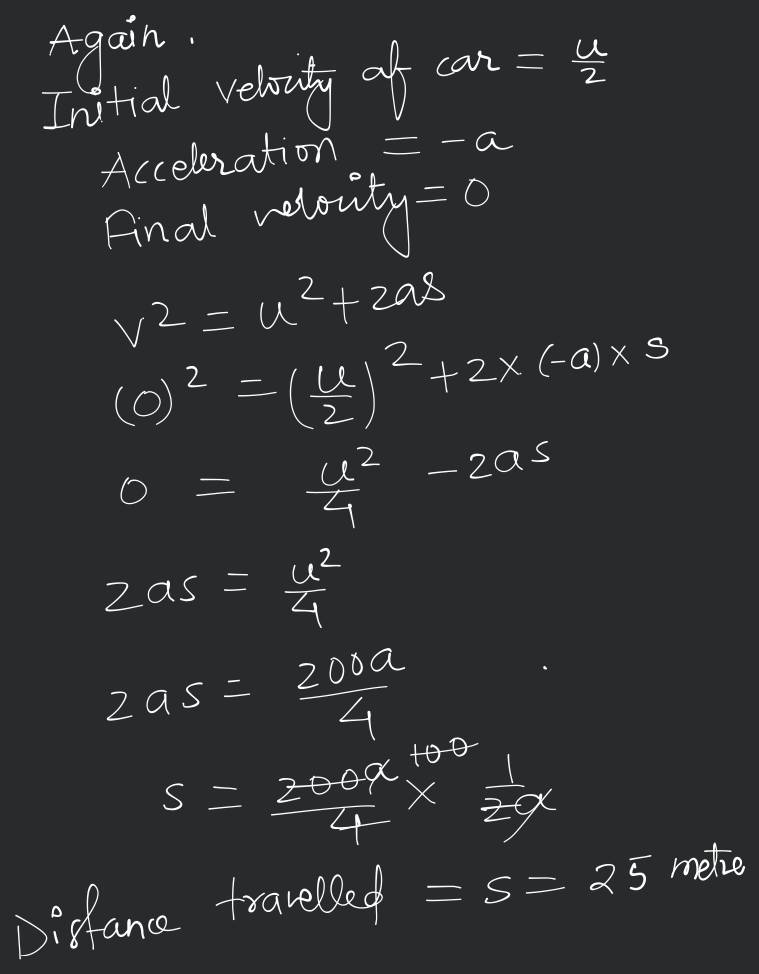 Again.
Initial velocity of car = u/2
Acceleration = -a
Final velocity = 0
v² = u² + 2as
(0)² = (u/2)² + 2 × (-a) × s
0 = u²/4 - 2as
2as = u²/4
2as = 200a/4
s = 200a/4 100 × 1/2a
Distance travelled = s = 25 metre